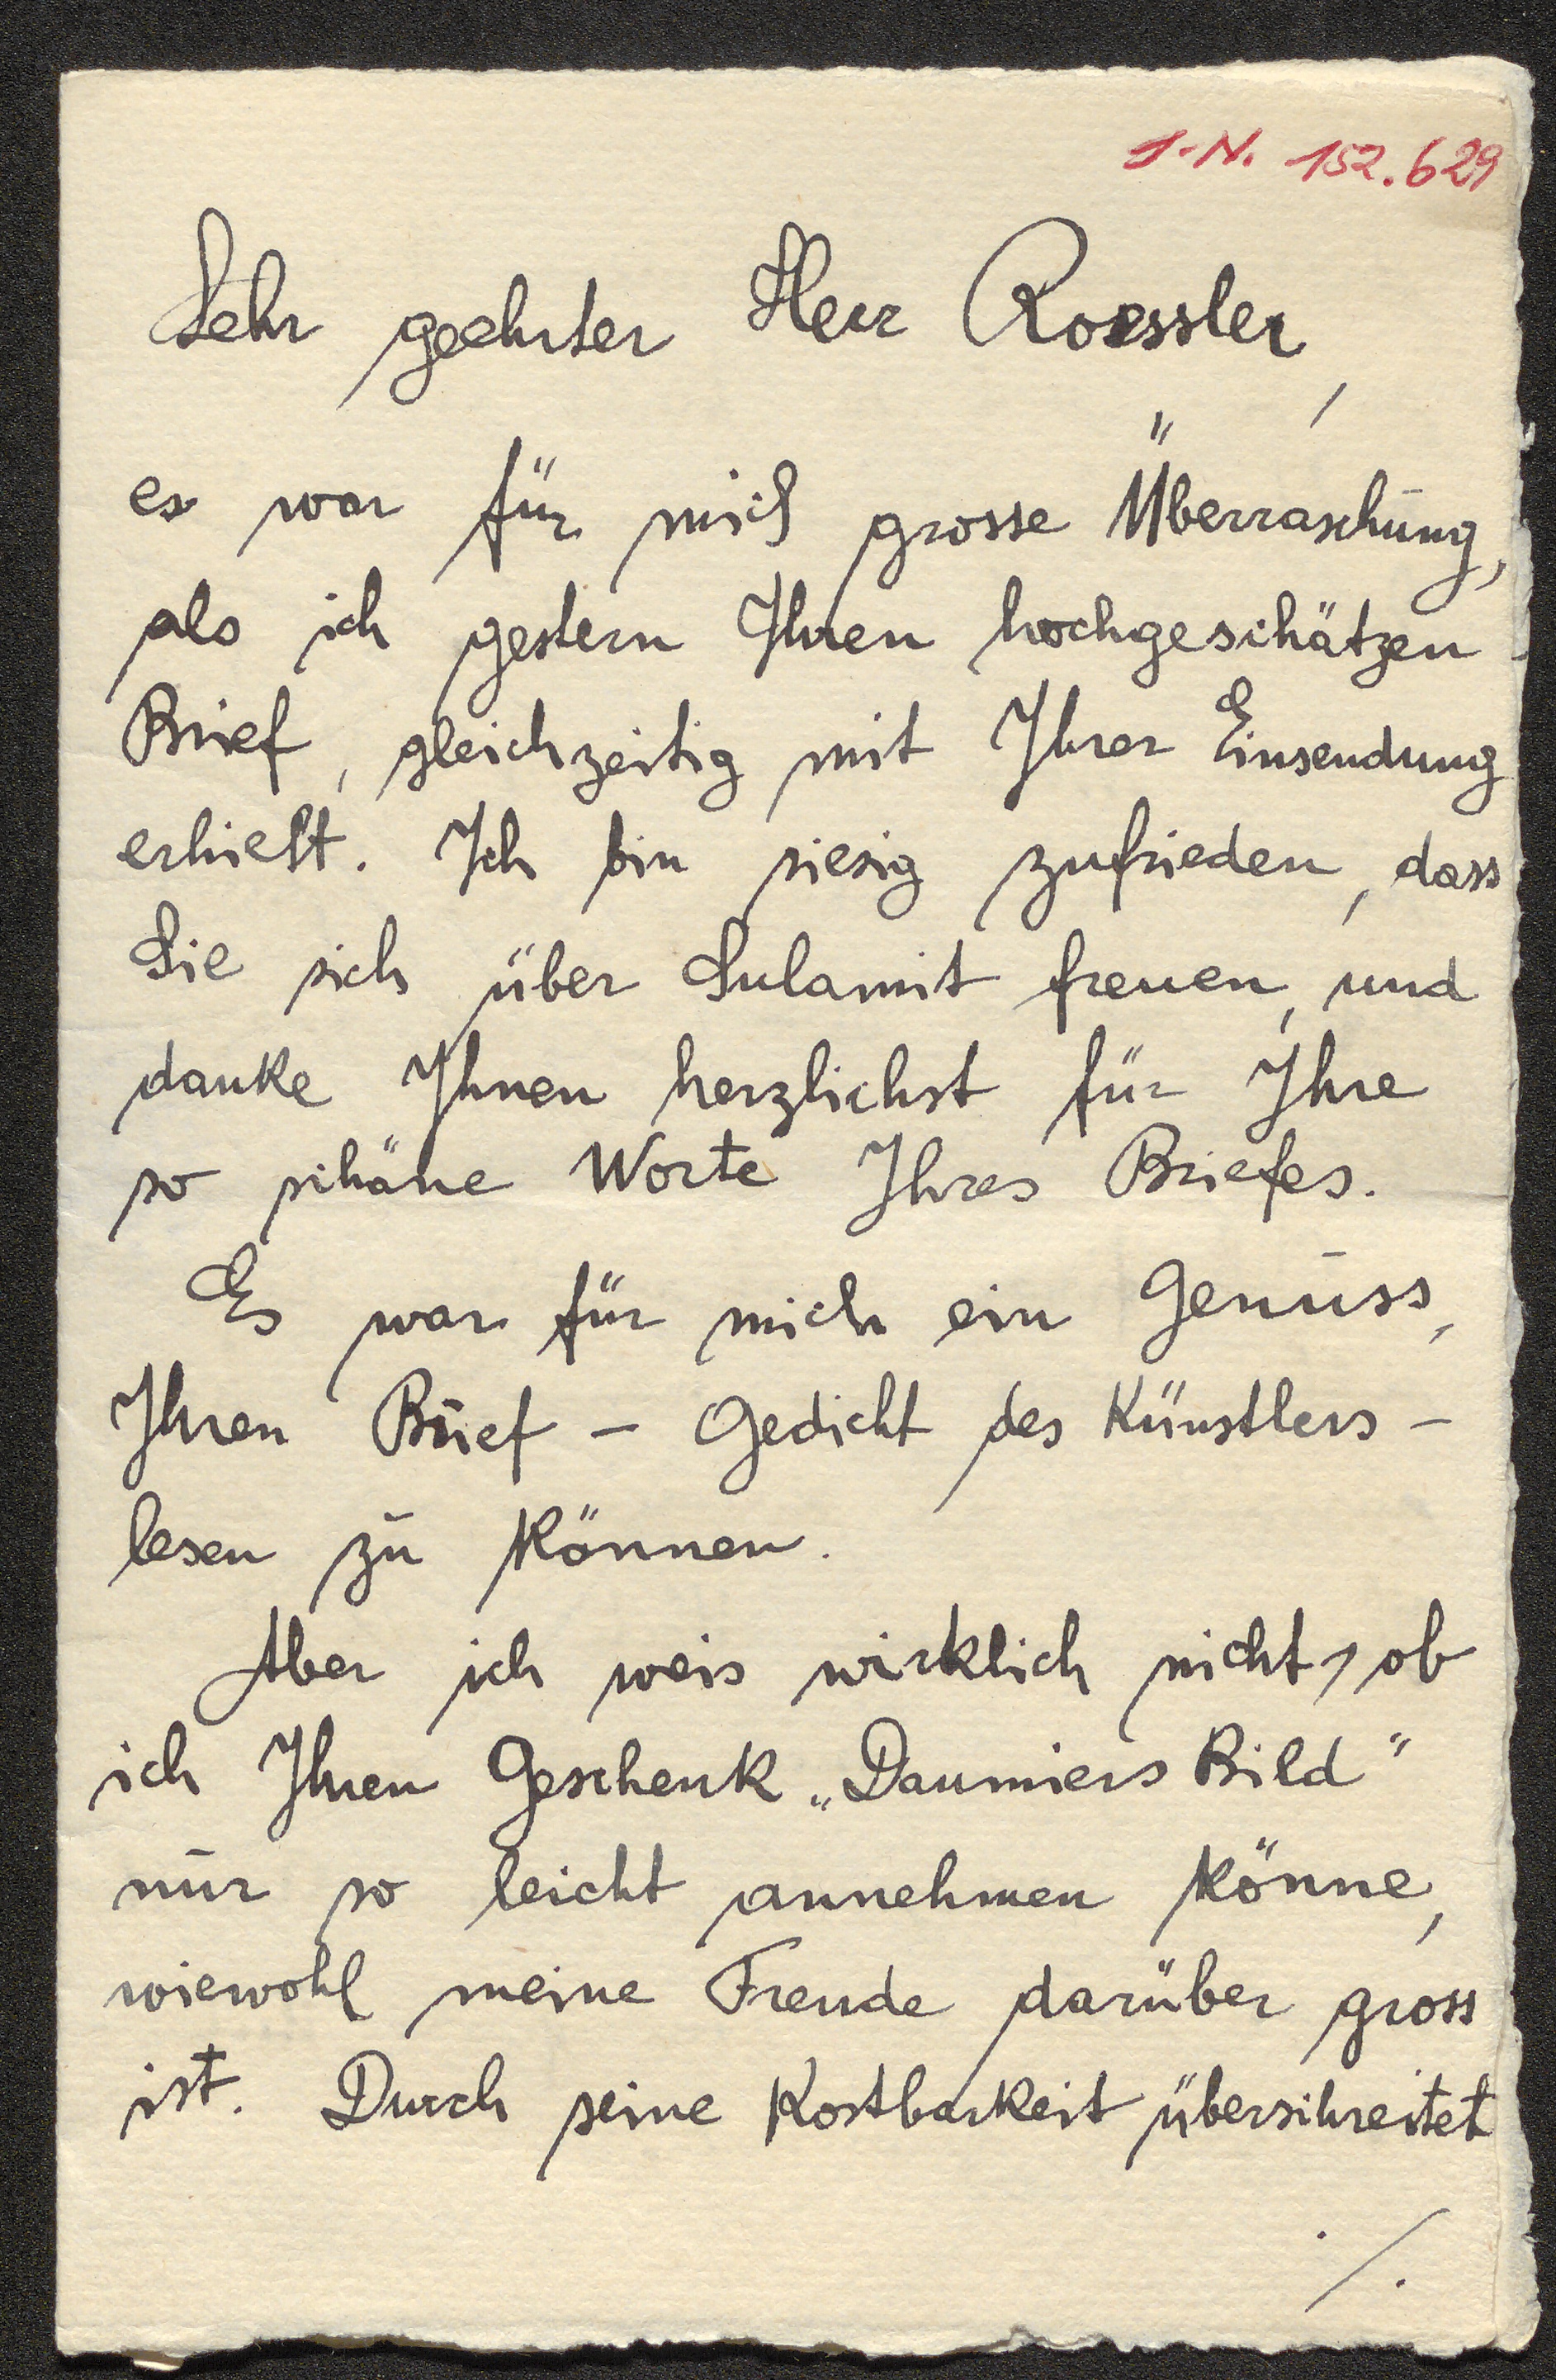 I-N. 152.629
Sehr geehrter Herr Roessler,
es war für mich grosse Überraschung,
als ich gestern Ihren hochgeschätzen
Brief, gleichzeitig mit Ihrer Einsendung
erhielt. Ich bin riesig zufrieden, dass
Sie sich über Sulamit freuen, und
danke Ihnen herzlichst für Ihre
so schöne Worte Ihres Briefes.
Es war für mich ein Genuss,
Ihren Brief – Gedicht des Künstlers –
lesen zu können.
Aber ich weis wirklich nicht, ob
ich Ihren Geschenk „Daumiers Bild"
nur so leicht annehmen könne,
wiewohl meine Freude darüber gross
ist. Durch seine Kostbarkeit überschreitet
./.